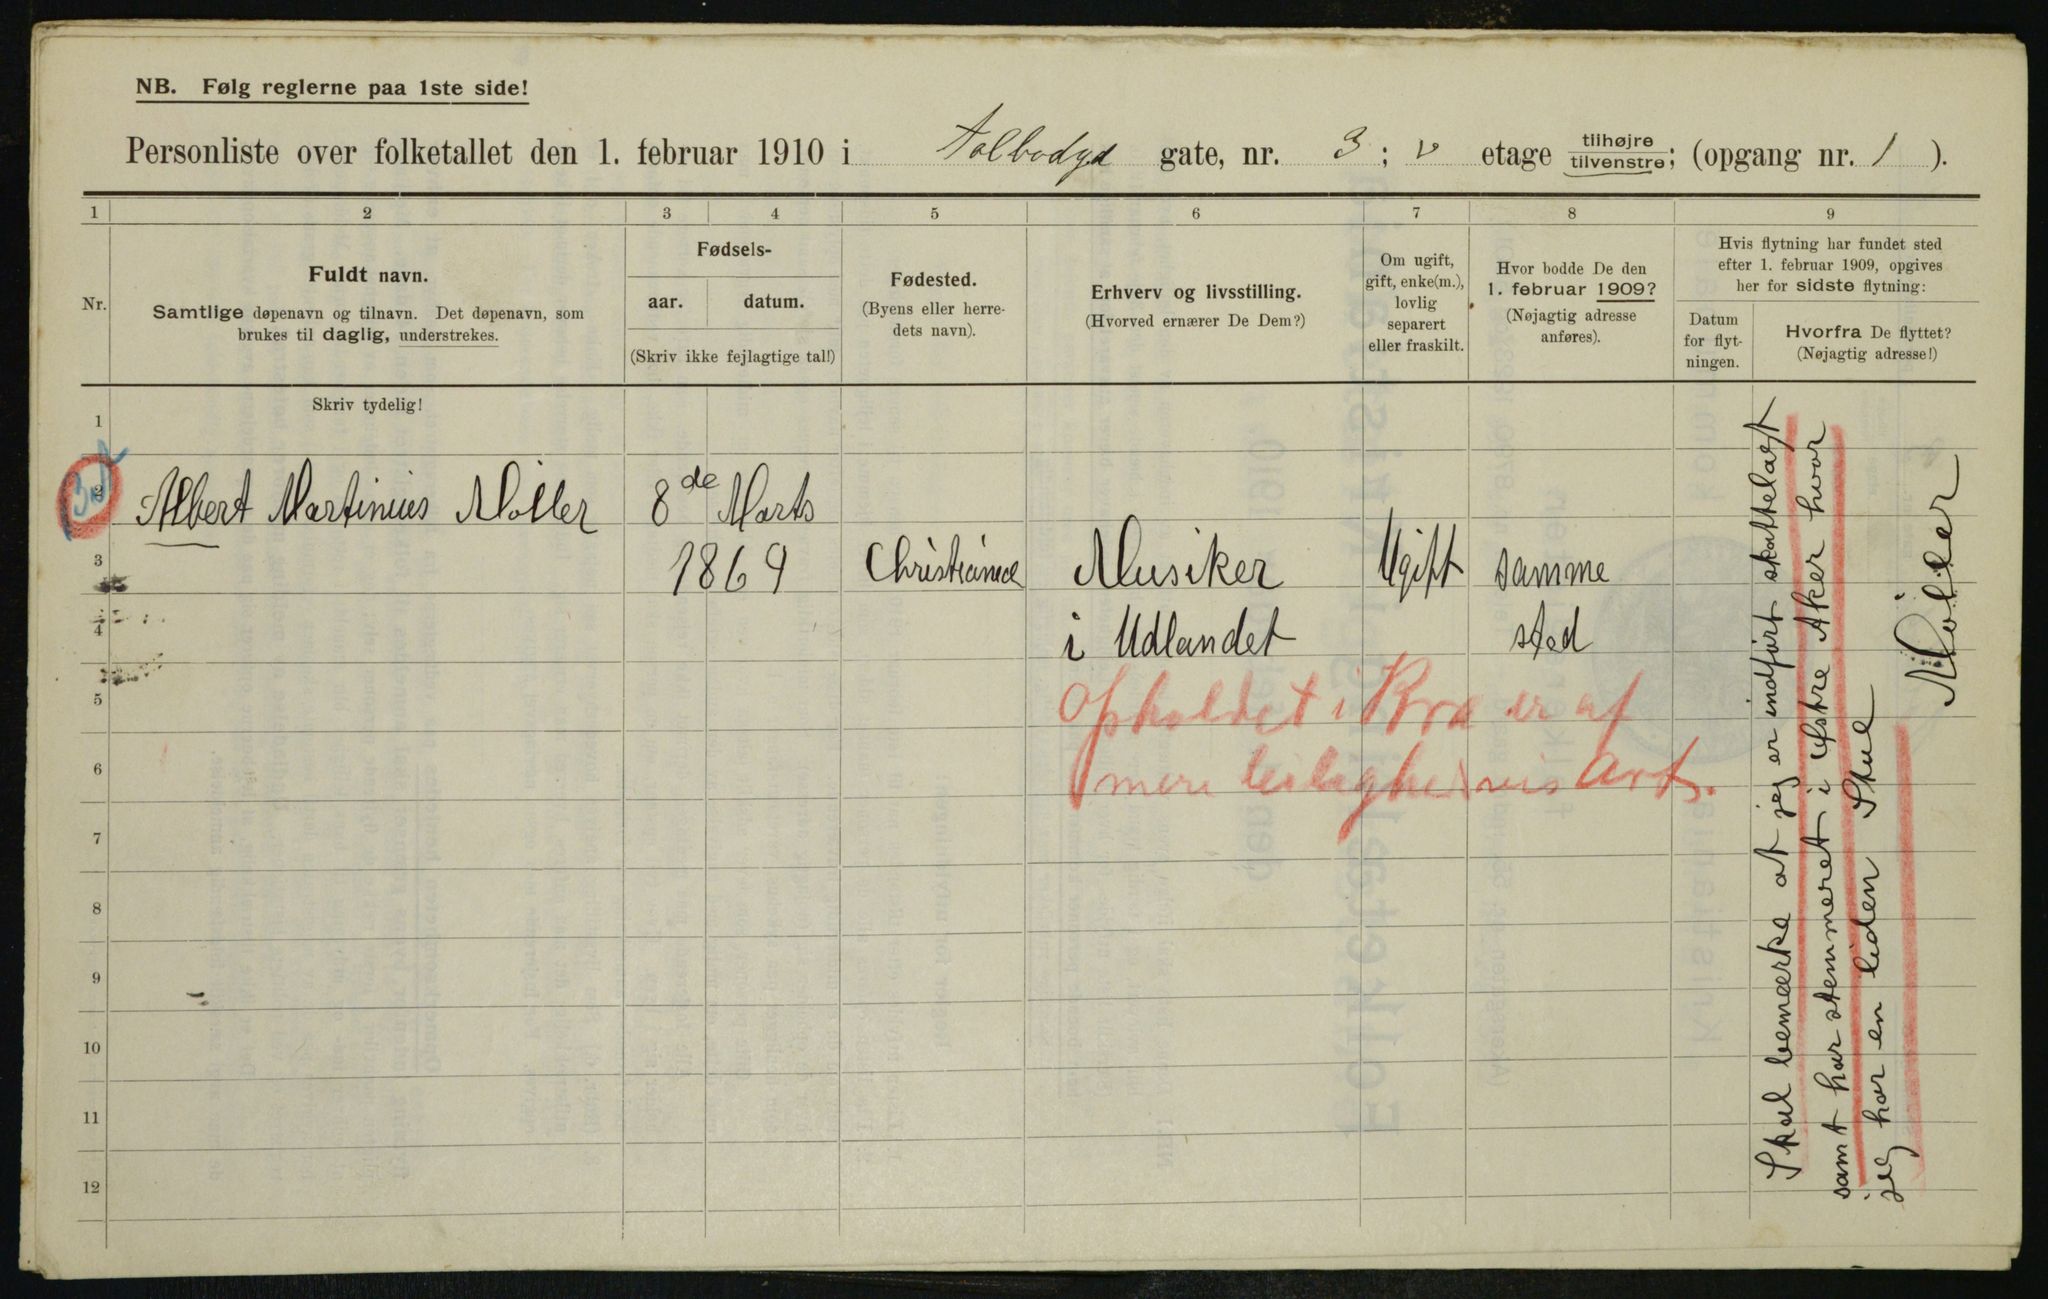 NB. Følg reglerne paa 1ste side!
Personliste over folketallet den 1. februar 1910 i Tolbodgd gate, nr. 3; V etage tilhøjre tilvenstre; (opgang nr. 1).
1 2 3 4 5 6 7 8 9
Nr.
Fuldt navn.
Samtlige døpenavn og tilnavn. Det døpenavn, som
brukes til daglig, understrekes.
Fødsels-
aar. datum.
(Skriv ikke fejlagtige tal!)
Fødested.
(Byens eller herre-
dets navn).
Erhverv og livsstilling.
(Hvorved ernærer De Dem?)
Om ugift,
gift, enke(m.),
lovlig
separert
eller fraskilt.
Hvor bodde De den
1. februar 1909?
(Nøjagtig adresse
anføres).
Hvis flytning har fundet sted
efter 1. februar 1909, opgives
her for sidste flytning:
Datum
for flyt-
ningen.
Hvorfra De flyttet?
(Nøjagtig adresse!)
Skriv tydelig!
1
2 Albert Martinius Möller 8de Marts
3 1869 Christiania Musiker Ugift samme
4 i Udlandet sted
5 Opholdet i Kra er af
6 mere leilighedsvis Art.
7
8
9
10
11
12
Skal bemærke at jeg er indført skattelagt
samt har stemmeret i Østre Aker hvor
jeg har en liden Stue
Möller